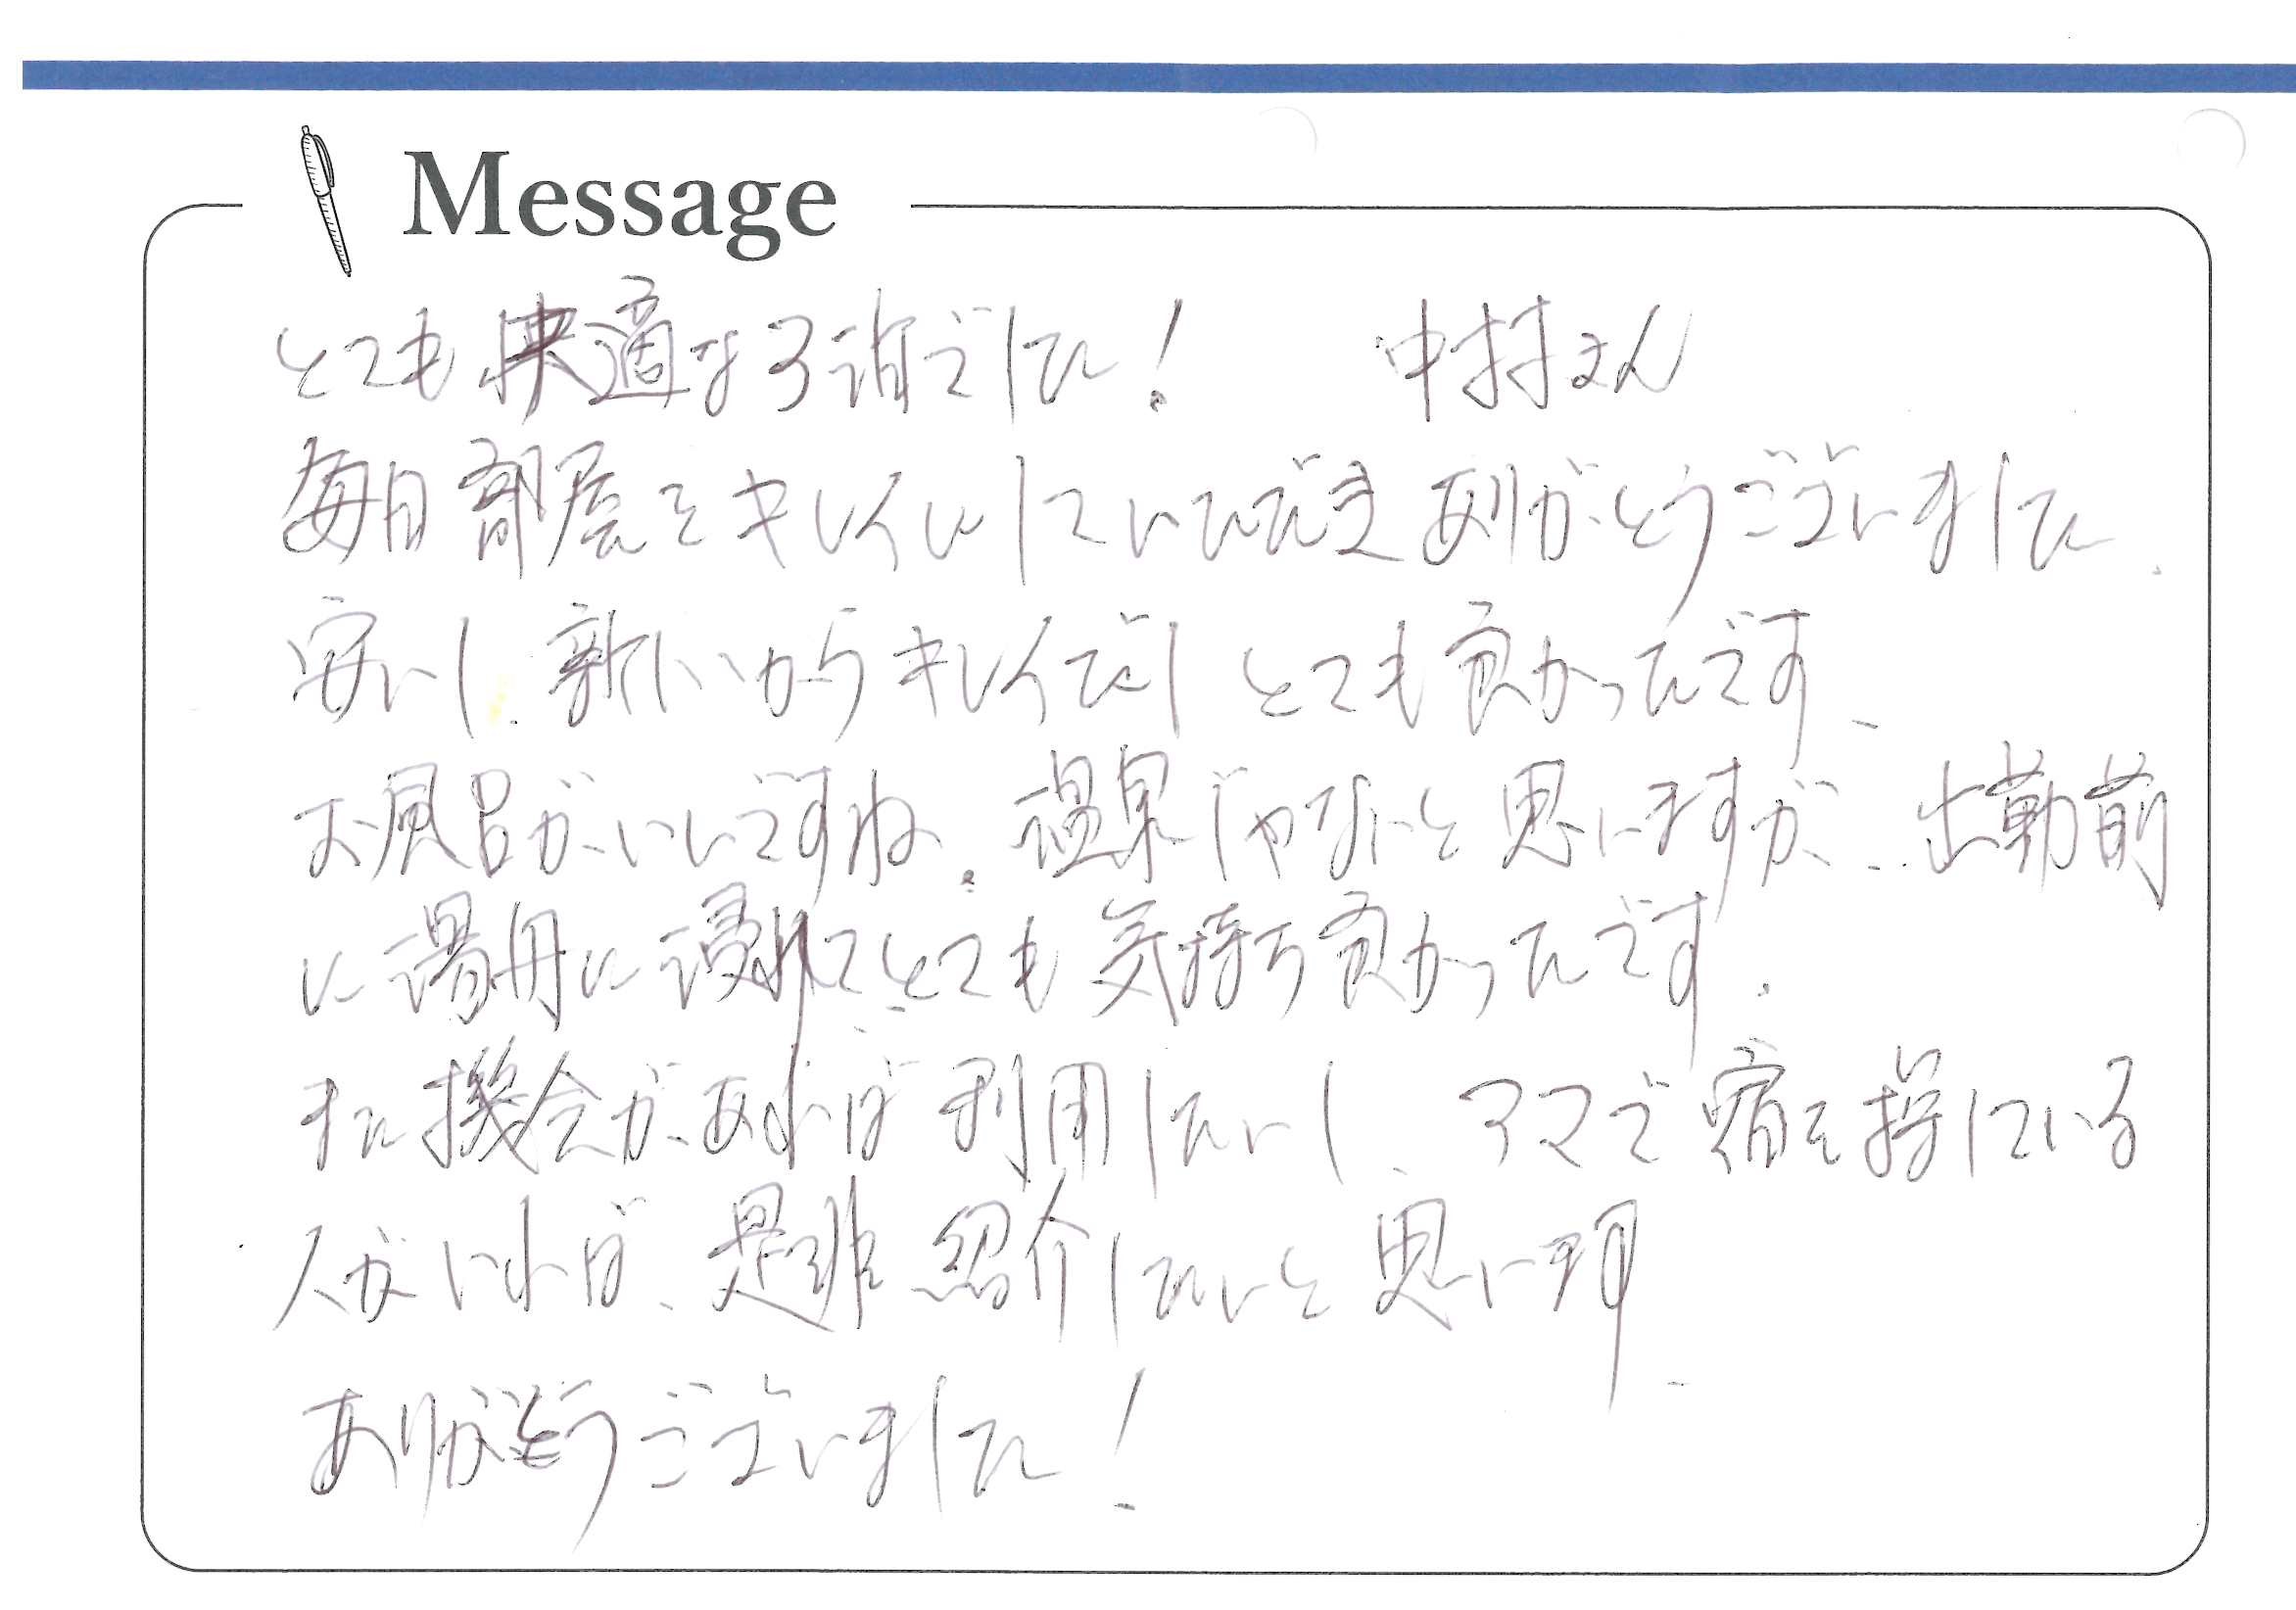 Message
とても快適な3泊でした! 中村さん
毎日部屋をキレイにしていただき ありがとうございました.
安いし、新しいからキレイだし とても良かったです、
お風呂がいいですね。温泉じゃないと思いますが、出勤前
に湯舟に浸れてとても気持ち良かったです.
また機会があれば利用したいし、アマで宿を探している
人がいれば、是非紹介したいと思います.
ありがとうございました!